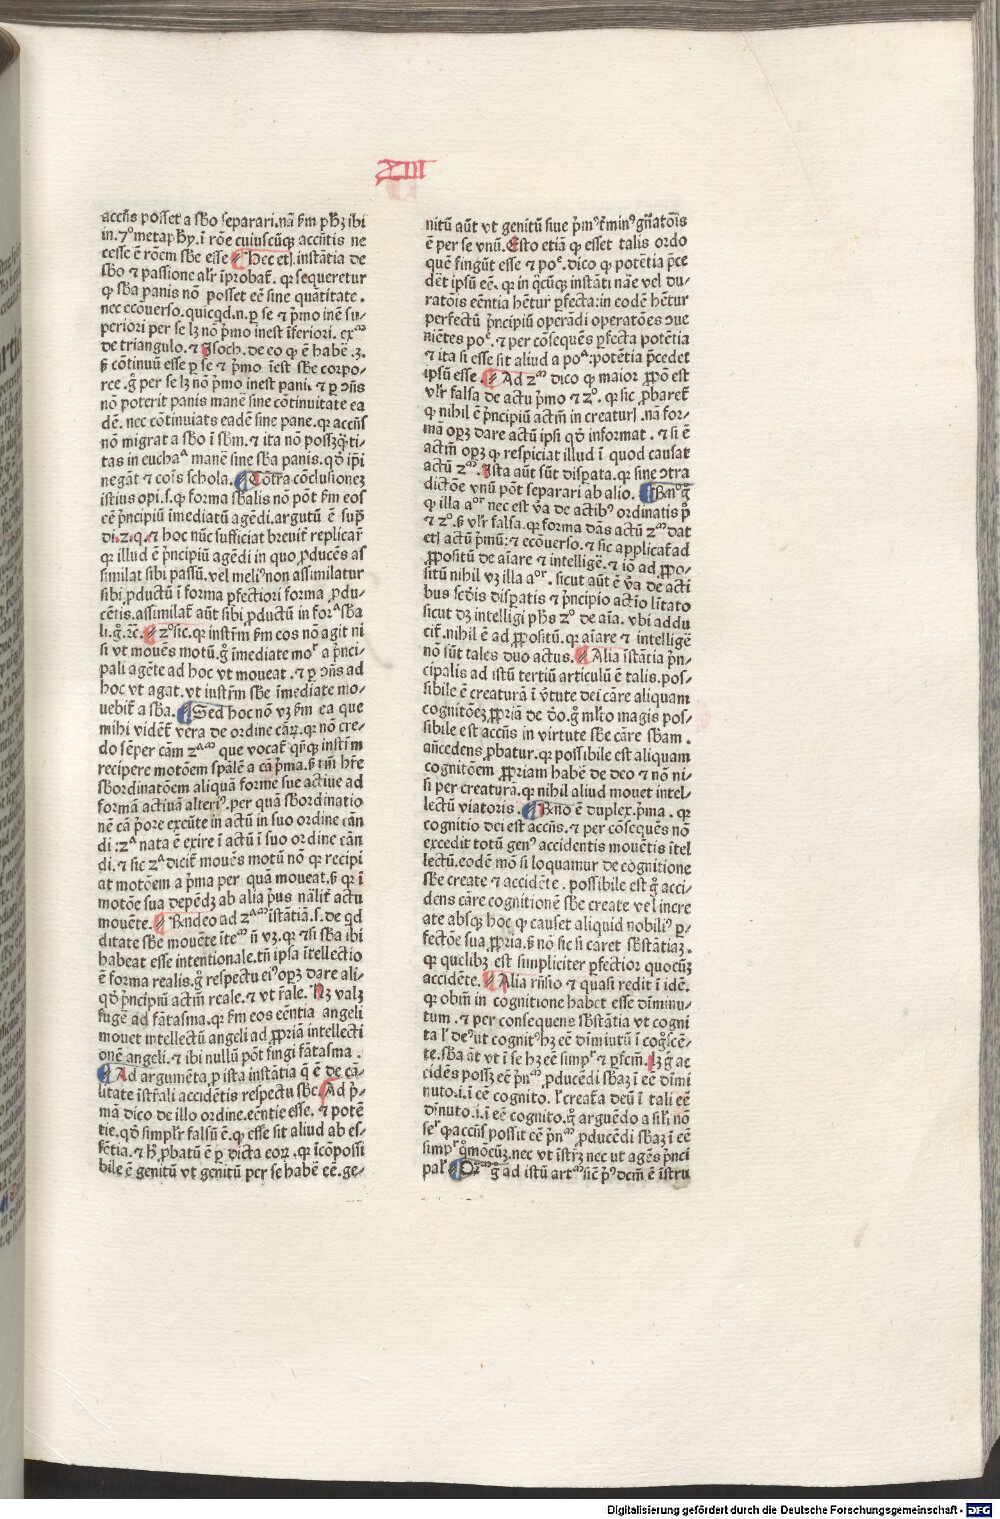 XIII
accn̄s posset a sb̄o separari. nā ẜm ph̄ꝫ ibi
in .7º metaph̄y. ī rōe cuiuscūqꝫ accn̄tis ne
cesse ē rōem sb̄e esse Hec etī instātia de
sb̄o ⁊ passione alr̄ īprobat̄. qꝛ sequeretur
ꝙ sb̄a panis nō posset eē sine quātitate .
nec ecōuerso. quicqd .n. ꝑ se ⁊ p̄mo inē su⸗
periori per se lꝫ nō p̄mo inest īferiori. exᵐ
de triangulo. ⁊ Isoch. de eo ꝙ ē habē .3.
ẞ cōtinuū esse ꝑ se ⁊ p̄mo īest sb̄e corpo⸗
ree. g̊ per se lꝫ nō p̄mo inest pani. ⁊ ꝑ ꝯn̄s
nō poterit panis manē sine cōtinuitate ea
dē. nec cōtinuitas eadē sine pane. qꝛ accn̄s
nō migrat a sb̄o ī sb̄m. ⁊ ita nō possꝫ qᷓti⸗
tas in euchaᵃ manē sine sb̄a panis. qd̓ ip̄i
negāt ⁊ cōis schola. Cōtra cōclusionez
istius opi. s. ꝙ forma sb̄alis nō pōt ẜm eos
eē p̄ncipiū īmediatū agēdi. argutū ē sup̄
di. 2. q. ⁊ hoc nūc sufficiat breuit̄ replicar̄
qꝛ illud ē p̄ncipiū agēdi in quo ꝓducēs as
similat sibi passū. vel meliꝰ non assimilatur
sibi ꝓductū ī forma ꝑfectiori forma ꝓdu⸗
cētis. assimilat̄ aūt sibi ꝓductū in forᵃ sb̄a
li. g̊. ꝛc̄. 2º sic. qꝛ instr̄m ẜm eos nō agit ni
si vt mouēs motū. g̊ īmediate moʳ a p̄nci⸗
pali agēte ad hoc vt moueat. ⁊ ꝑ ꝯn̄s ad
hoc vt agat. vt iustr̄m sb̄e īmediate mo⸗
uebit̄ a sb̄a. Sed hoc nō vꝫ ẜm ea que
mihi vident̄ vera de ordine cāꝝ. qꝛ nō cre⸗
do sēper cām 2ᵃᵐ que vocat̄ qn̄qꝫ instr̄m
recipere motōem spālē a cā p̄ma. ẞ tm̄ hr̄e
sb̄ordinatōem aliquā forme sue actiue ad
formā actiuā alteriꝰ. per quā sb̄ordinatio
nē cā p̄ore exeūte in actū in suo ordine cān
di: 2ᵃ nata ē exire ī actū ī suo ordine cān
di. ⁊ sic 2ᵃ dicit̄ mouēs motū nō qꝛ recipi
at motōem a p̄ma per quā moueat. ẞ qꝛ ī
motōe sua depēdꝫ ab alia p̄us nālit̄ actu
mouēte. Rn̄deo ad 2ᵃᵐ īstātiā. s. de qd
ditate sb̄e mouēte īteᵐ n̄ vꝫ. qꝛ ⁊si sb̄a ibi
habeat esse intentionale. tn̄ ipsa ītellectio
ē forma realis. g̊ respectu eiꝰ oꝑꝫ dare ali⸗
qd̓ p̄ncipiū actm̄ reale. ⁊ vt r̄ale. Nꝫ valꝫ
fugē ad fātasma. qꝛ ẜm eos eēntia angeli
mouet intellectū angeli ad ꝓpriā intellecti
onē angeli. ⁊ ibi nullū pōt fingi fātasma .
Ad argumēta ꝓ ista instātia q̄ ē de cā⸗
litate īstr̄ali accidētis respectu sb̄e Ad p̄⸗
mā dico de illo ordine. eēntie esse. ⁊ potē
tie. qd̓ simplr̄ falsū ē. ꝙ esse sit aliud ab es⸗
sētia. ⁊ h̄ ꝓbatū ē ꝑ dicta eoꝝ. ꝙ īcōpossi
bile ē genitū vt genitū per se habē eē. ge⸗
nitū aūt vt genitū siue p̄mꝰ t̄minꝰ gn̄atōis
ē per se vnū. Esto etiā ꝙ esset talis ordo
quē fingūt esse ⁊ poᵉ. dico ꝙ potētia p̄ce
dēt ipsū eē. qꝛ in q̊cūqꝫ instāti nāe vel du⸗
ratōis eēntia hētur ꝑfecta: in eodē hētur
perfectū p̄ncipiū operādi operatōes ꝯue
niētes poᵉ. ⁊ per cōsequēs ꝑfecta potētia
⁊ ita si esse sit aliud a poᵃ: potētia p̄cedet
ipsū esse. Ad 2ᵐ dico ꝙ maior ꝓpō est
vlr̄ falsa de actu p̄mo ⁊ 2º. qꝛ sic ꝓbaret̄
ꝙ nihil ē p̄ncipiū actm̄ in creaturꝭ. nā for⸗
mā oꝑꝫ dare actū ipsi qd̓ informat. ⁊ si ē
actm̄ oꝑꝫ ꝙ respiciat illud ī quod causat
actū 2ᵐ. Ista aūt sūt disꝑata. qꝛ sine ꝯtra
dictōe vnū pōt separari ab alio. Rn̄º g̊
ꝙ illa aºʳ nec est v̄a de actibꝰ ordinatis p̊
⁊ 2º. ẞ vlr̄ falsa. qꝛ forma dās actū 2ᵐ dat
etꝭ actū p̄mū: ⁊ ecōuerso. ⁊ sic applicat̄ ad
ꝓpositū de aīare ⁊ intelligē. ⁊ iō ad ꝓpo⸗
sitū nihil vꝫ illa aºʳ. sicut aūt ē v̄a de acti
bus scd̓is disꝑatis ⁊ p̄ncipio actio līitato
sicut dꝫ intelligi ph̄s 2º de aīa. vbi addu
cit̄. nihil ē ad ꝓpositū. qꝛ aīare ⁊ intelligē
nō sūt tales duo actus. Alia īstātia p̄n⸗
cipalis ad istū tertiū articulū ē talis. pos⸗
sibile ē creaturā ī v̄tute dei cāre aliquam
cognitōeꝫ ꝓpriā de d̓o. g̊ ml̓to magis pos⸗
sibile est accn̄s in virtute sb̄e cāre sb̄am .
an̄cedens ꝓbatur. qꝛ possibile est aliquam
cognitōem ꝓpriam habē de deo ⁊ nō ni⸗
si per creaturā. qꝛ nihil aliud mouet intel⸗
lectū viatoris. Rn̄o ē duplex. p̄ma . qꝛ
cognitio dei est accn̄s. ⁊ per cōsequēs nō
excedit totū genꝰ accidentis mouētis ītel
lectū. eodē mō si loquamur de cognitione
sb̄e create ⁊ accidēte . possibile est g̊ acci⸗
dens cāre cognitionē sb̄e create vel incre
ate absqꝫ hoc ꝙ causet aliquid nobiliꝰ ꝑ⸗
fectōe sua ꝓpria. ẞ nō sic si caret sb̄stātiaꝫ.
qꝛ quelibꝫ est simpliciter ꝑfectior quocūꝫ
accidēte. Alia rn̄sio ⁊ quasi redit ī idē.
qꝛ obm̄ in cognitione habet esse dīminu⸗
tum . ⁊ per consequens sb̄stātia vt cogni
ta l̓ deꝰ ut cognitꝰ hꝫ eē dimiutū ī cog̊scē⸗
te. sb̄a āt vt ī se hꝫ eē simpʳ ⁊ ꝑfcm̄. lꝫ g̊ ac
cidēs possꝫ eē p̄nᵐ ꝓducēdi sb̄aꝫ ī eē dimi
nuto. i. ī eē cognito. l̓ creat̄a deū ī tali eē
dīnuto. i. ī eē cognito. g̊ arguēdo a sil̓i nō
seʳ ꝙ accn̄s possit eē p̄nᵐ ꝓducēdi sb̄aꝫ ī eē
simpʳ q̊mōcūꝫ. nec vt īstr̄ꝫ nec ut agēs p̄nci
pal̓ g̊ ad istū artᵐ sīē p̄ꝰ dcm̄ ē īstru
Digitalisierung gefördert durch die Deutsche Forschungsgemeinschaft - DFG